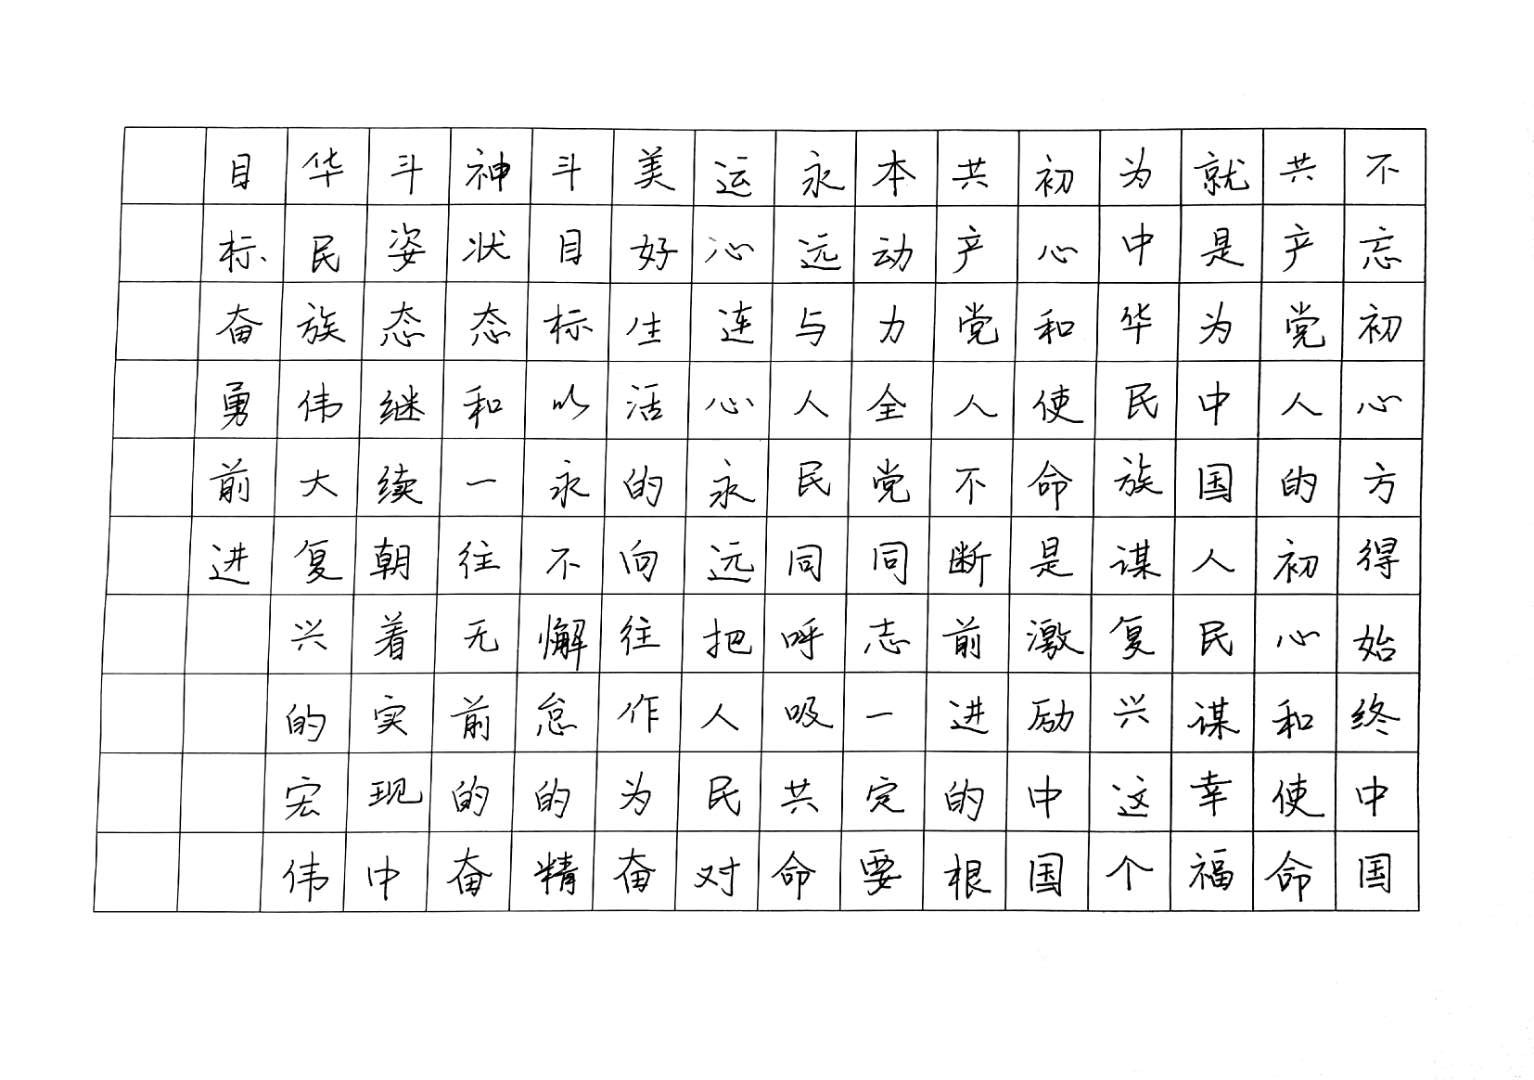 不忘初心方得始终中国
共产党人的初心和使命
就是为中国人民谋幸福
为中华民族谋复兴这个
初心和使命是激励中国
共产党人不断前进的根
本动力全党同志一定要
永远与人民同呼吸共命
运心连心永远把人民对
美好生活的向往作为奋
斗目标以永不懈怠的精
神状态和一往无前的奋
斗姿态继续朝着实现中
华民族伟大复兴的宏伟
目标奋勇前进